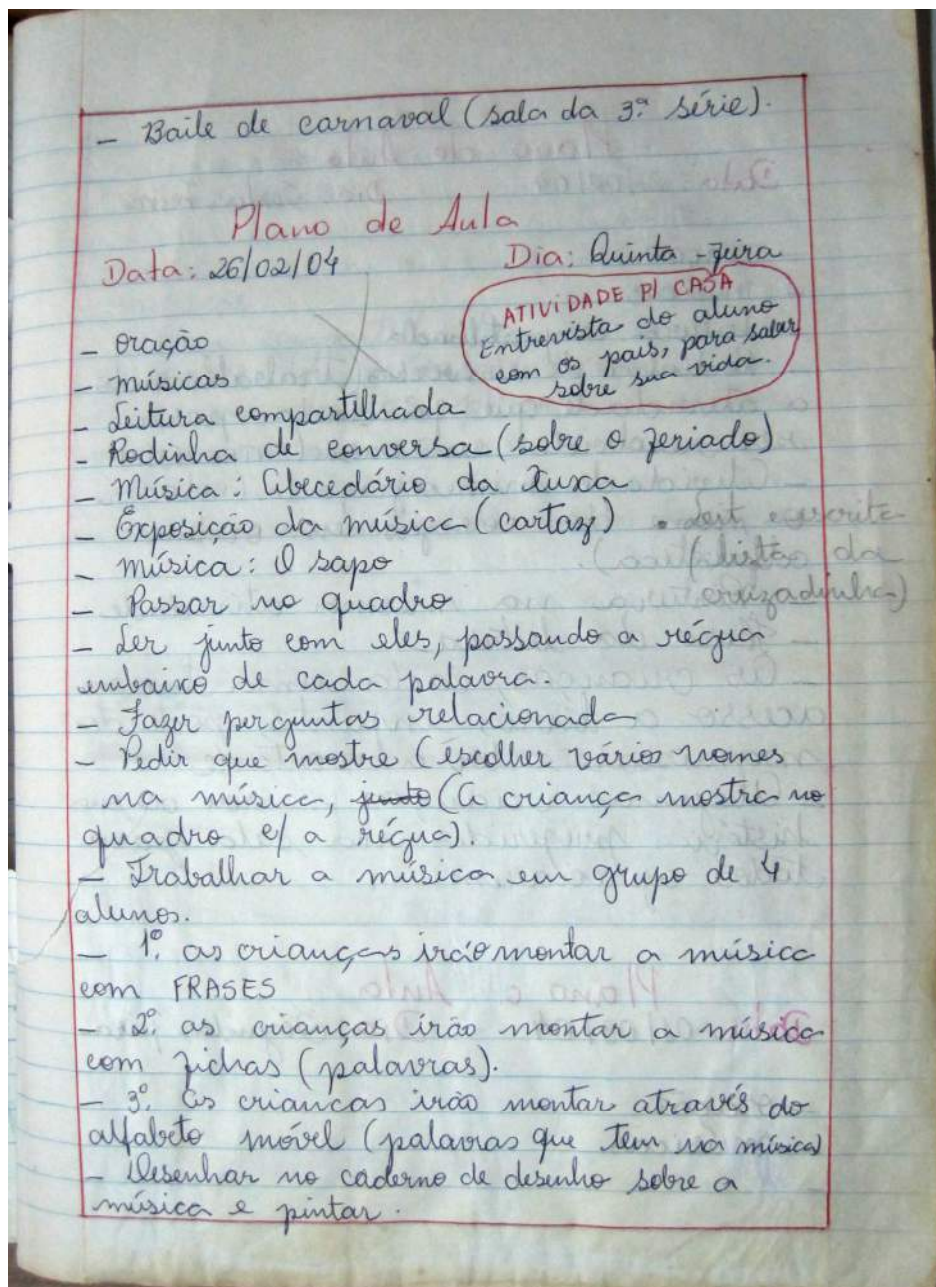 - Baile de carnaval (sala da 3ª série).
Plano de Aula
Data: 26/02/04 Dia: Quinta-feira
ATIVIDADE P/ CASA
Entrevista do aluno
com os pais, para saber
sobre sua vida.
- Oração
- músicas
- Leitura compartilhada
- Rodinha de conversa (sobre o feriado)
- Música: Abecedário da Xuxa
- Exposição da música (cartaz)
- música: O sapo
- Passar no quadro
- Ler junto com eles, passando a régua
embaixo de cada palavra.
- Fazer perguntas relacionada
- Pedir que mostre (escolher vários nomes
na música, junto (A criança mostra no
quadro c/ a régua).
- Trabalhar a música em grupo de 4
alunos.
- 1º. as crianças irão montar a música
com FRASES
- 2º. as crianças irão montar a música
com fichas (palavras).
- 3º. As crianças irão montar através do
alfabeto móvel (palavras que tem na música)
- Desenhar no caderno de desenho sobre a
música e pintar.